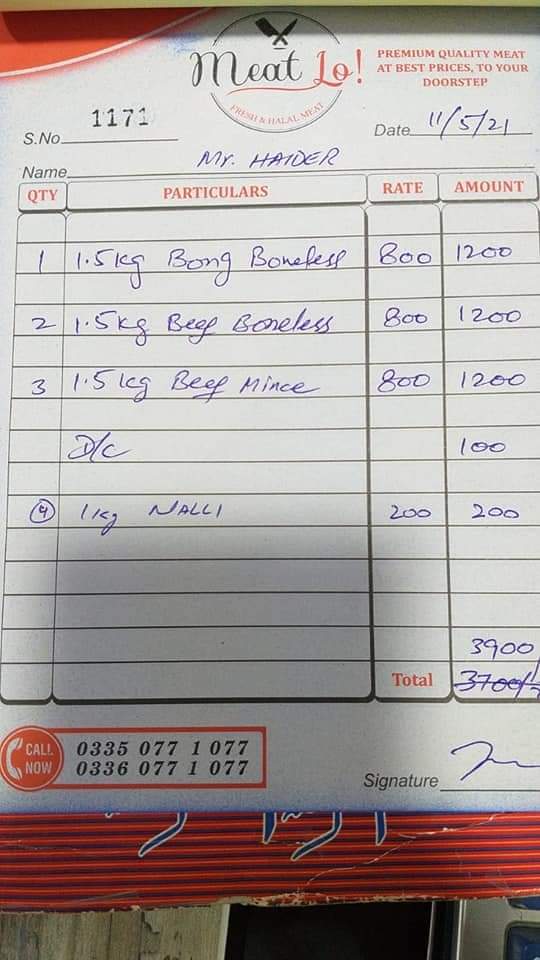 Meat Lo!
FRESH & HALAL MEAT
PREMIUM QUALITY MEAT
AT BEST PRICES, TO YOUR
DOORSTEP
S.No 1171
Date 11/5/21
Name Mr. HAIDER
QTY PARTICULARS RATE AMOUNT
1 1.5kg Bong Boneless 800 1200
2 1.5kg Beef Boneless 800 1200
3 1.5kg Beef Mince 800 1200
D/c 100
4 1kg NALLI 200 200
3900
Total 3700/-
CALL NOW
0335 077 1 077
0336 077 1 077
Signature